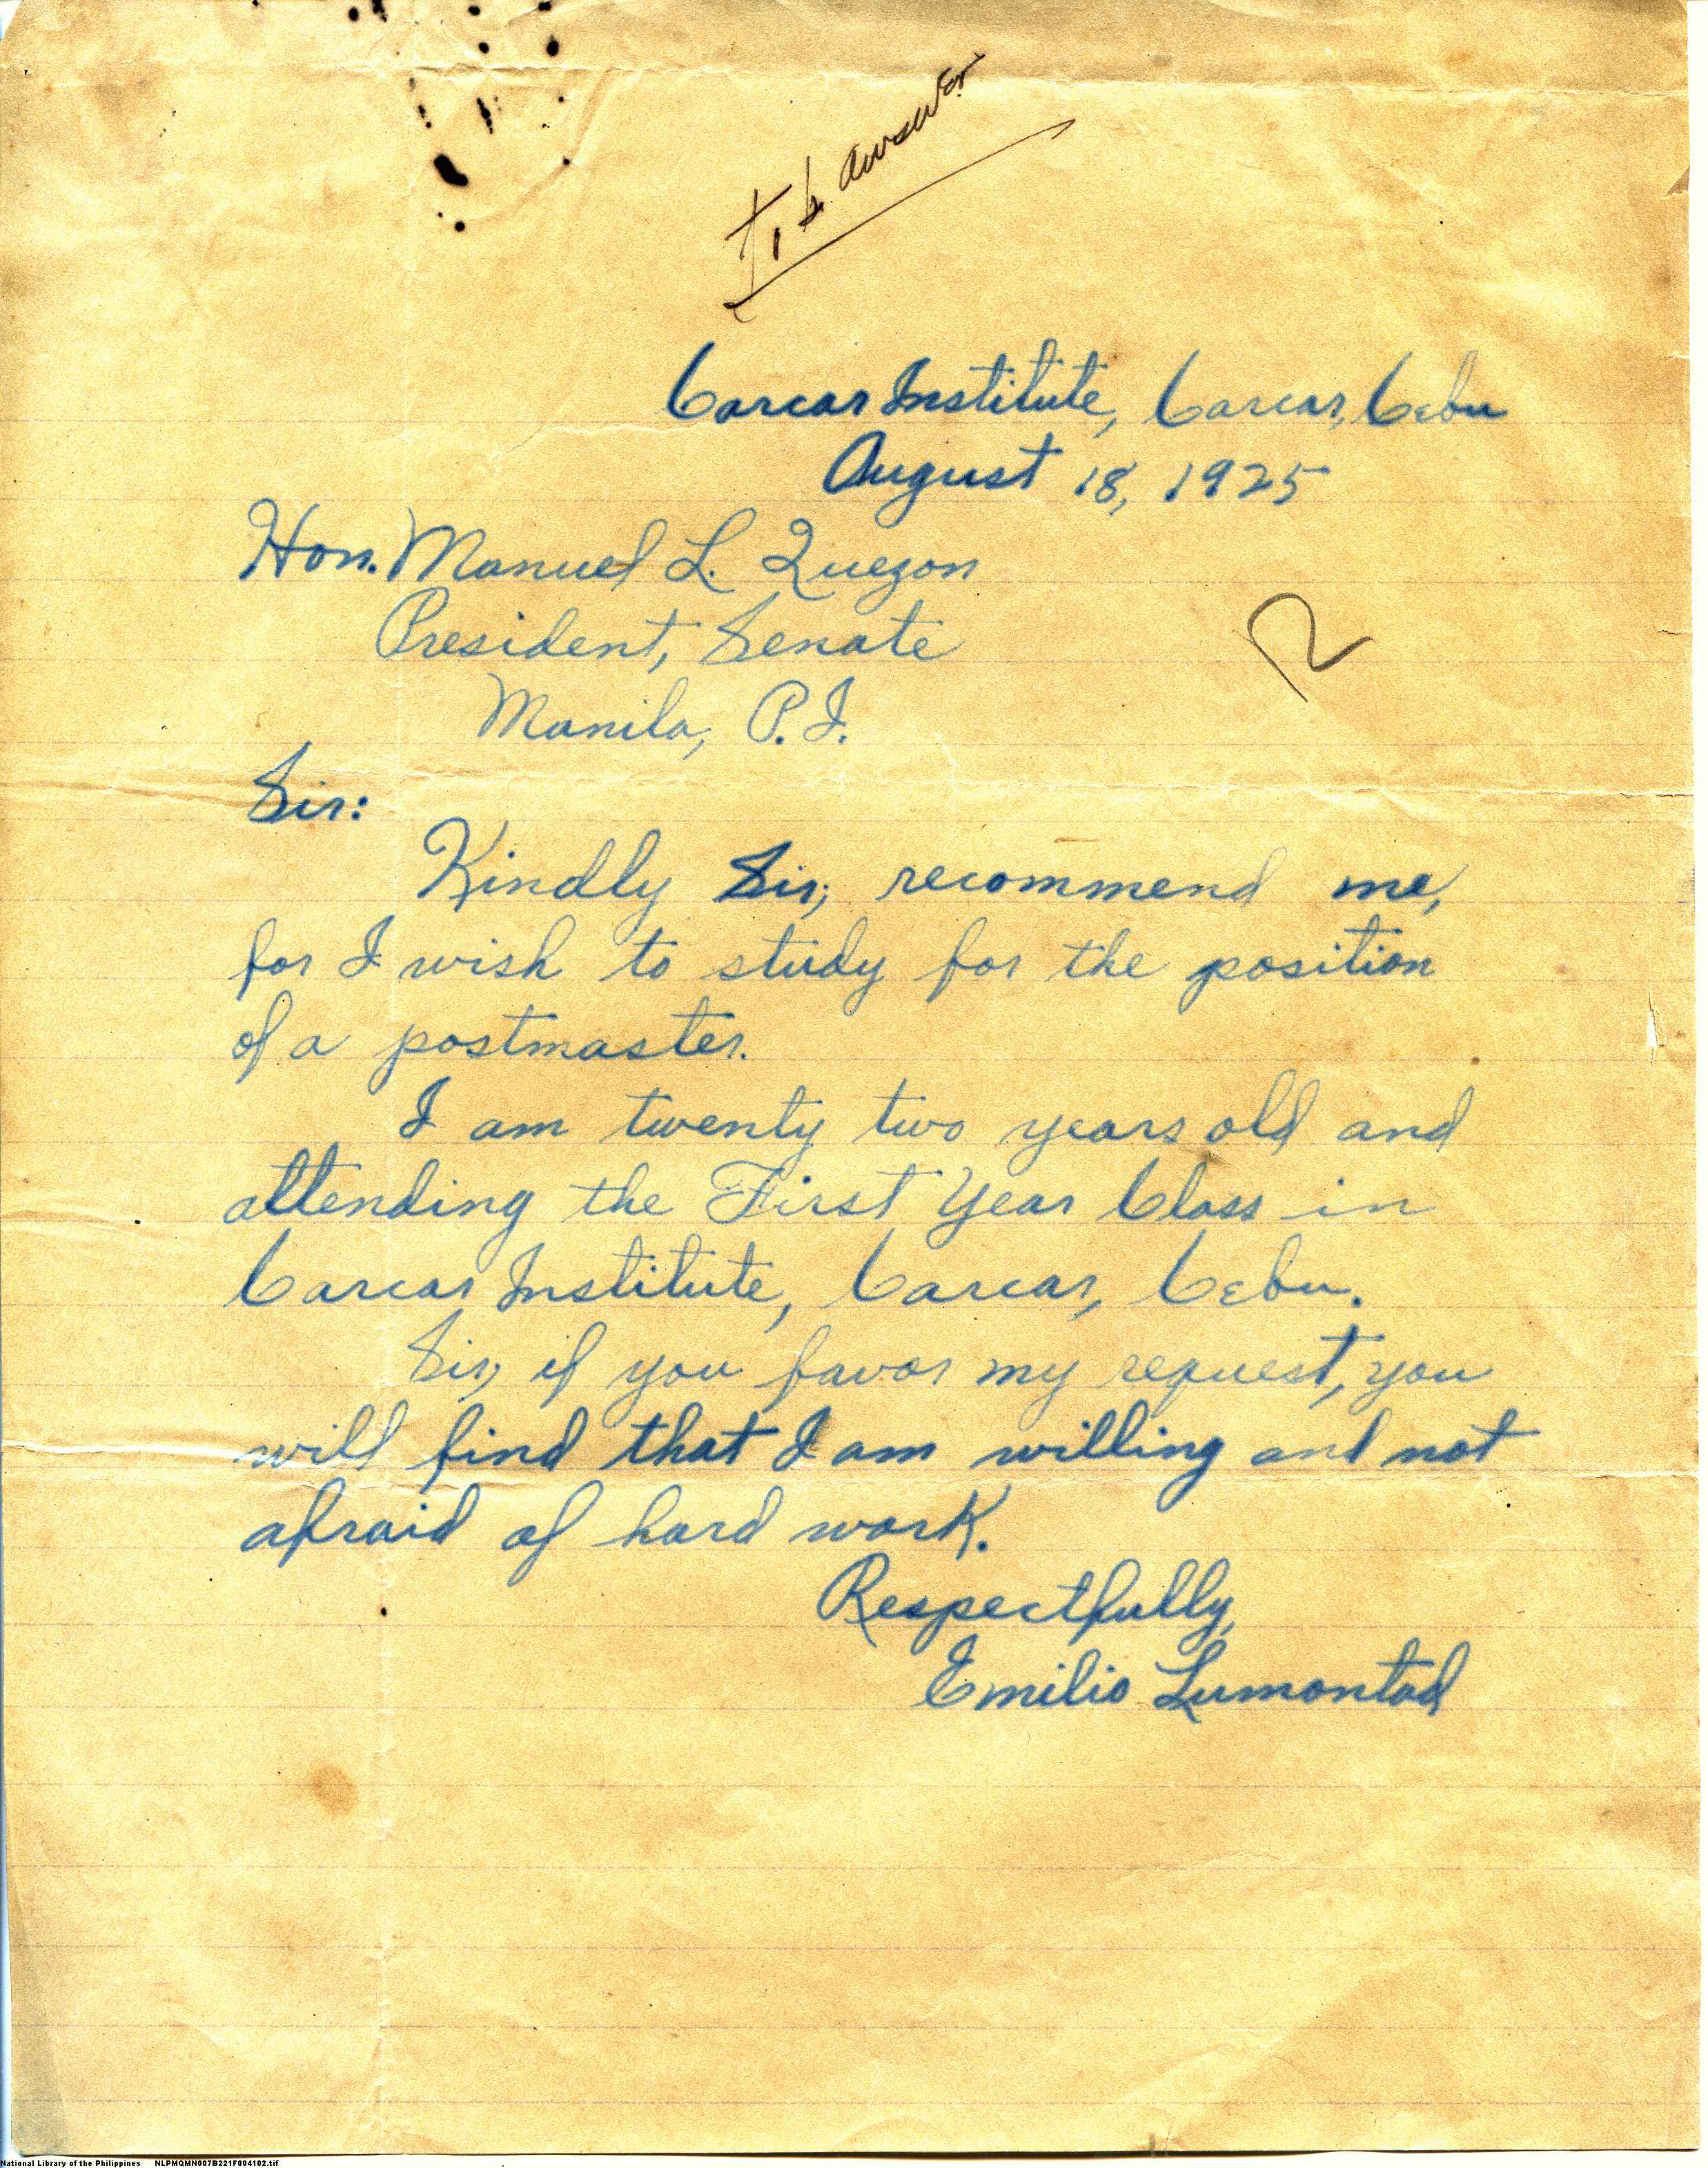 to b. answer
Carcar Institute, Carcar, Cebu
August 18, 1925
Hon. Manuel L. Quezon
President, Senate
Manila, P.I.
Sir:
Kindly Sir, recommend me,
for I wish to study for the position
of a postmaster.
I am twenty two years old and
attending the First Year Class in
Carcar Institute, Carcar, Cebu.
Sir, if you favor my request, you
will find that I am willing and not
afraid of hard work.
Respectfully,
Emilio Lumontad
National Library of the Philippines NLPMQMN007B221F004102.tif